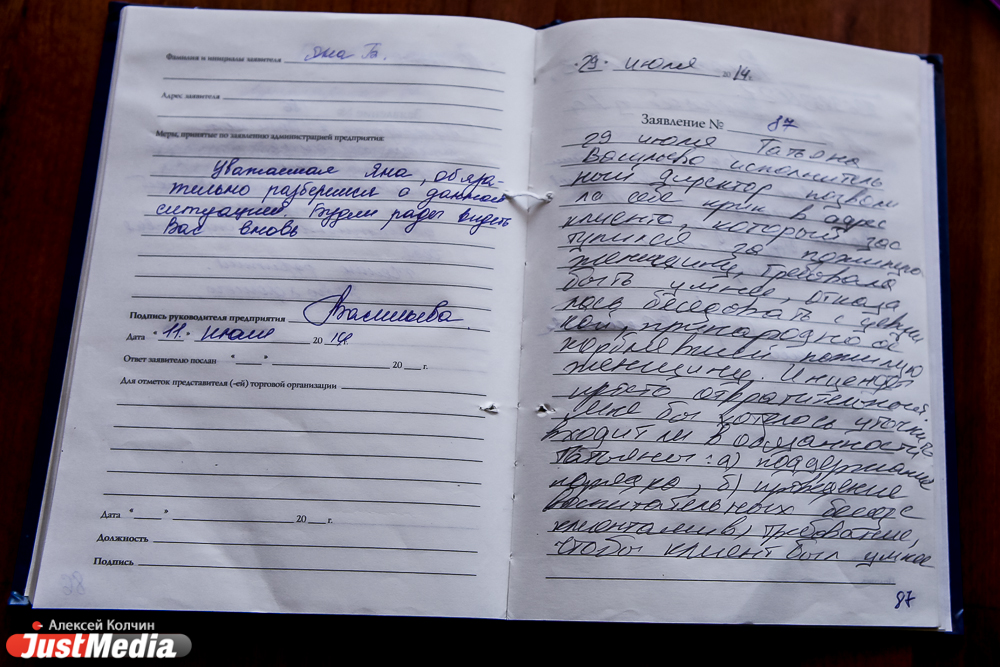 Фамилия и инициалы заявителя Яна Га.
Адрес заявителя
Меры, принятые по заявлению администрацией предприятия:
Уважаемая Яна, обяза-
тельно разберемся о данной
ситуацией. Будем рады видеть
Вас вновь
Подпись руководителя предприятия Васильева
Дата "11" июля 2014
Ответ заявителю послан "___" ______ 20___ г.
Для отметок представителя (-ей) торговой организации
Дата "___" ______ 20___ г.
Должность
Подпись
86
29 июля 2014 г.
Заявление № 87
29 июля Татьяна
Васильева исполнитель
ный директор позволи
ла себе крик в адрес
клиента, который зас
тупился за пожилую
женщину, требовала
быть умнее, отказа
лась беседовать с
принародно о
пожилую
женщину. Инцидент
просто отвратительный
Мне бы хотелось уточнить
входит ли в обязанности
Татьяны: а) поддержание
порядка, б) проведение
воспитательных бесед с
клиентами в) требование,
чтобы клиент был умнее
87
Алексей Колчин
JustMedia